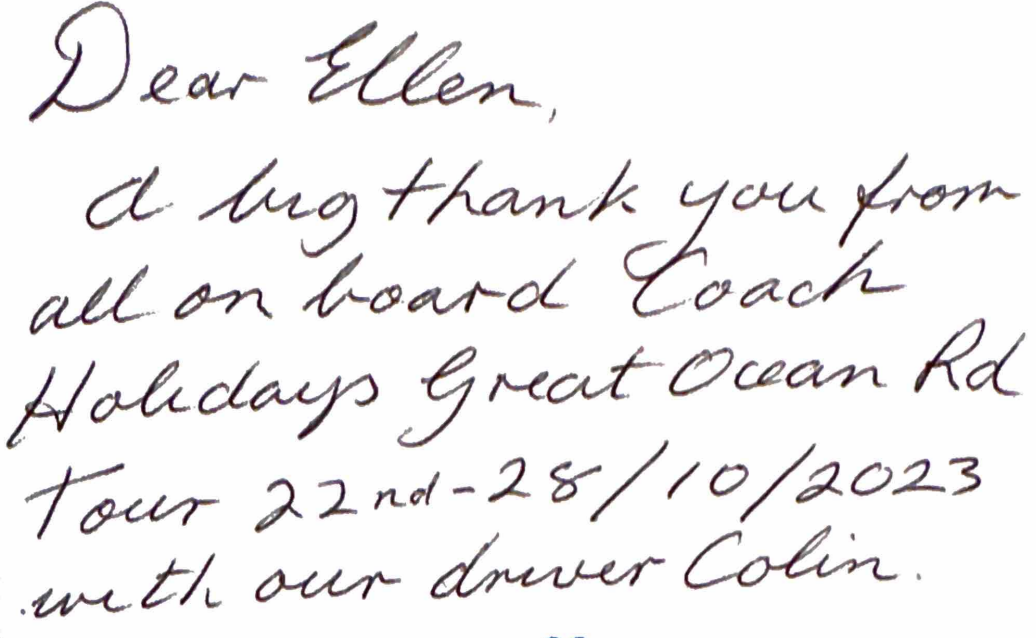 Dear Ellen,
A big thank you from
all on board Coach
Holidays Great Ocean Rd
Tour 22nd-28/10/2023
with our driver Colin.